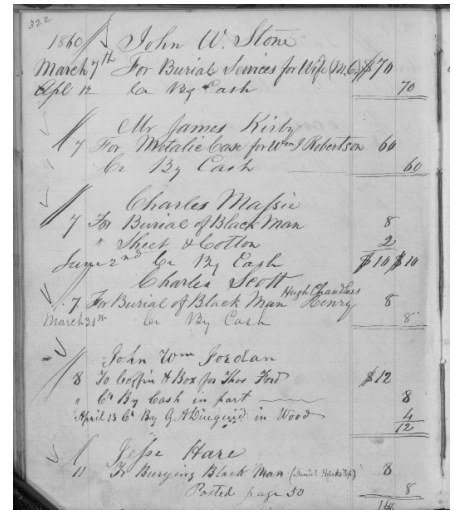 322
1860 John W. Stone
March 7th For Burial Services for Wife (M.C) $70
Apl 12 Cr By Cash 70
Mr James Kirby
7 For Metalic Case for Wm J Robertson 60
Cr By Cash 60
Charles Massie
7 For Burial of Black Man 8
" Sheet & Cotton 2
June 2nd Cr By Cash $10 $10
Charles Scott
7 For Burial of Black Man Hugh Chandlers Henry 8
March 31st Cr By Cash 8
John Wm Jordan
8 To Coffin & Box for Thos Ford $12
" Cr By Cash in part 8
April 13 Cr By G A Diuguid in Wood 4
12
Jesse Hare
11 For Burying Black Man 8
Posted page 50 8
16